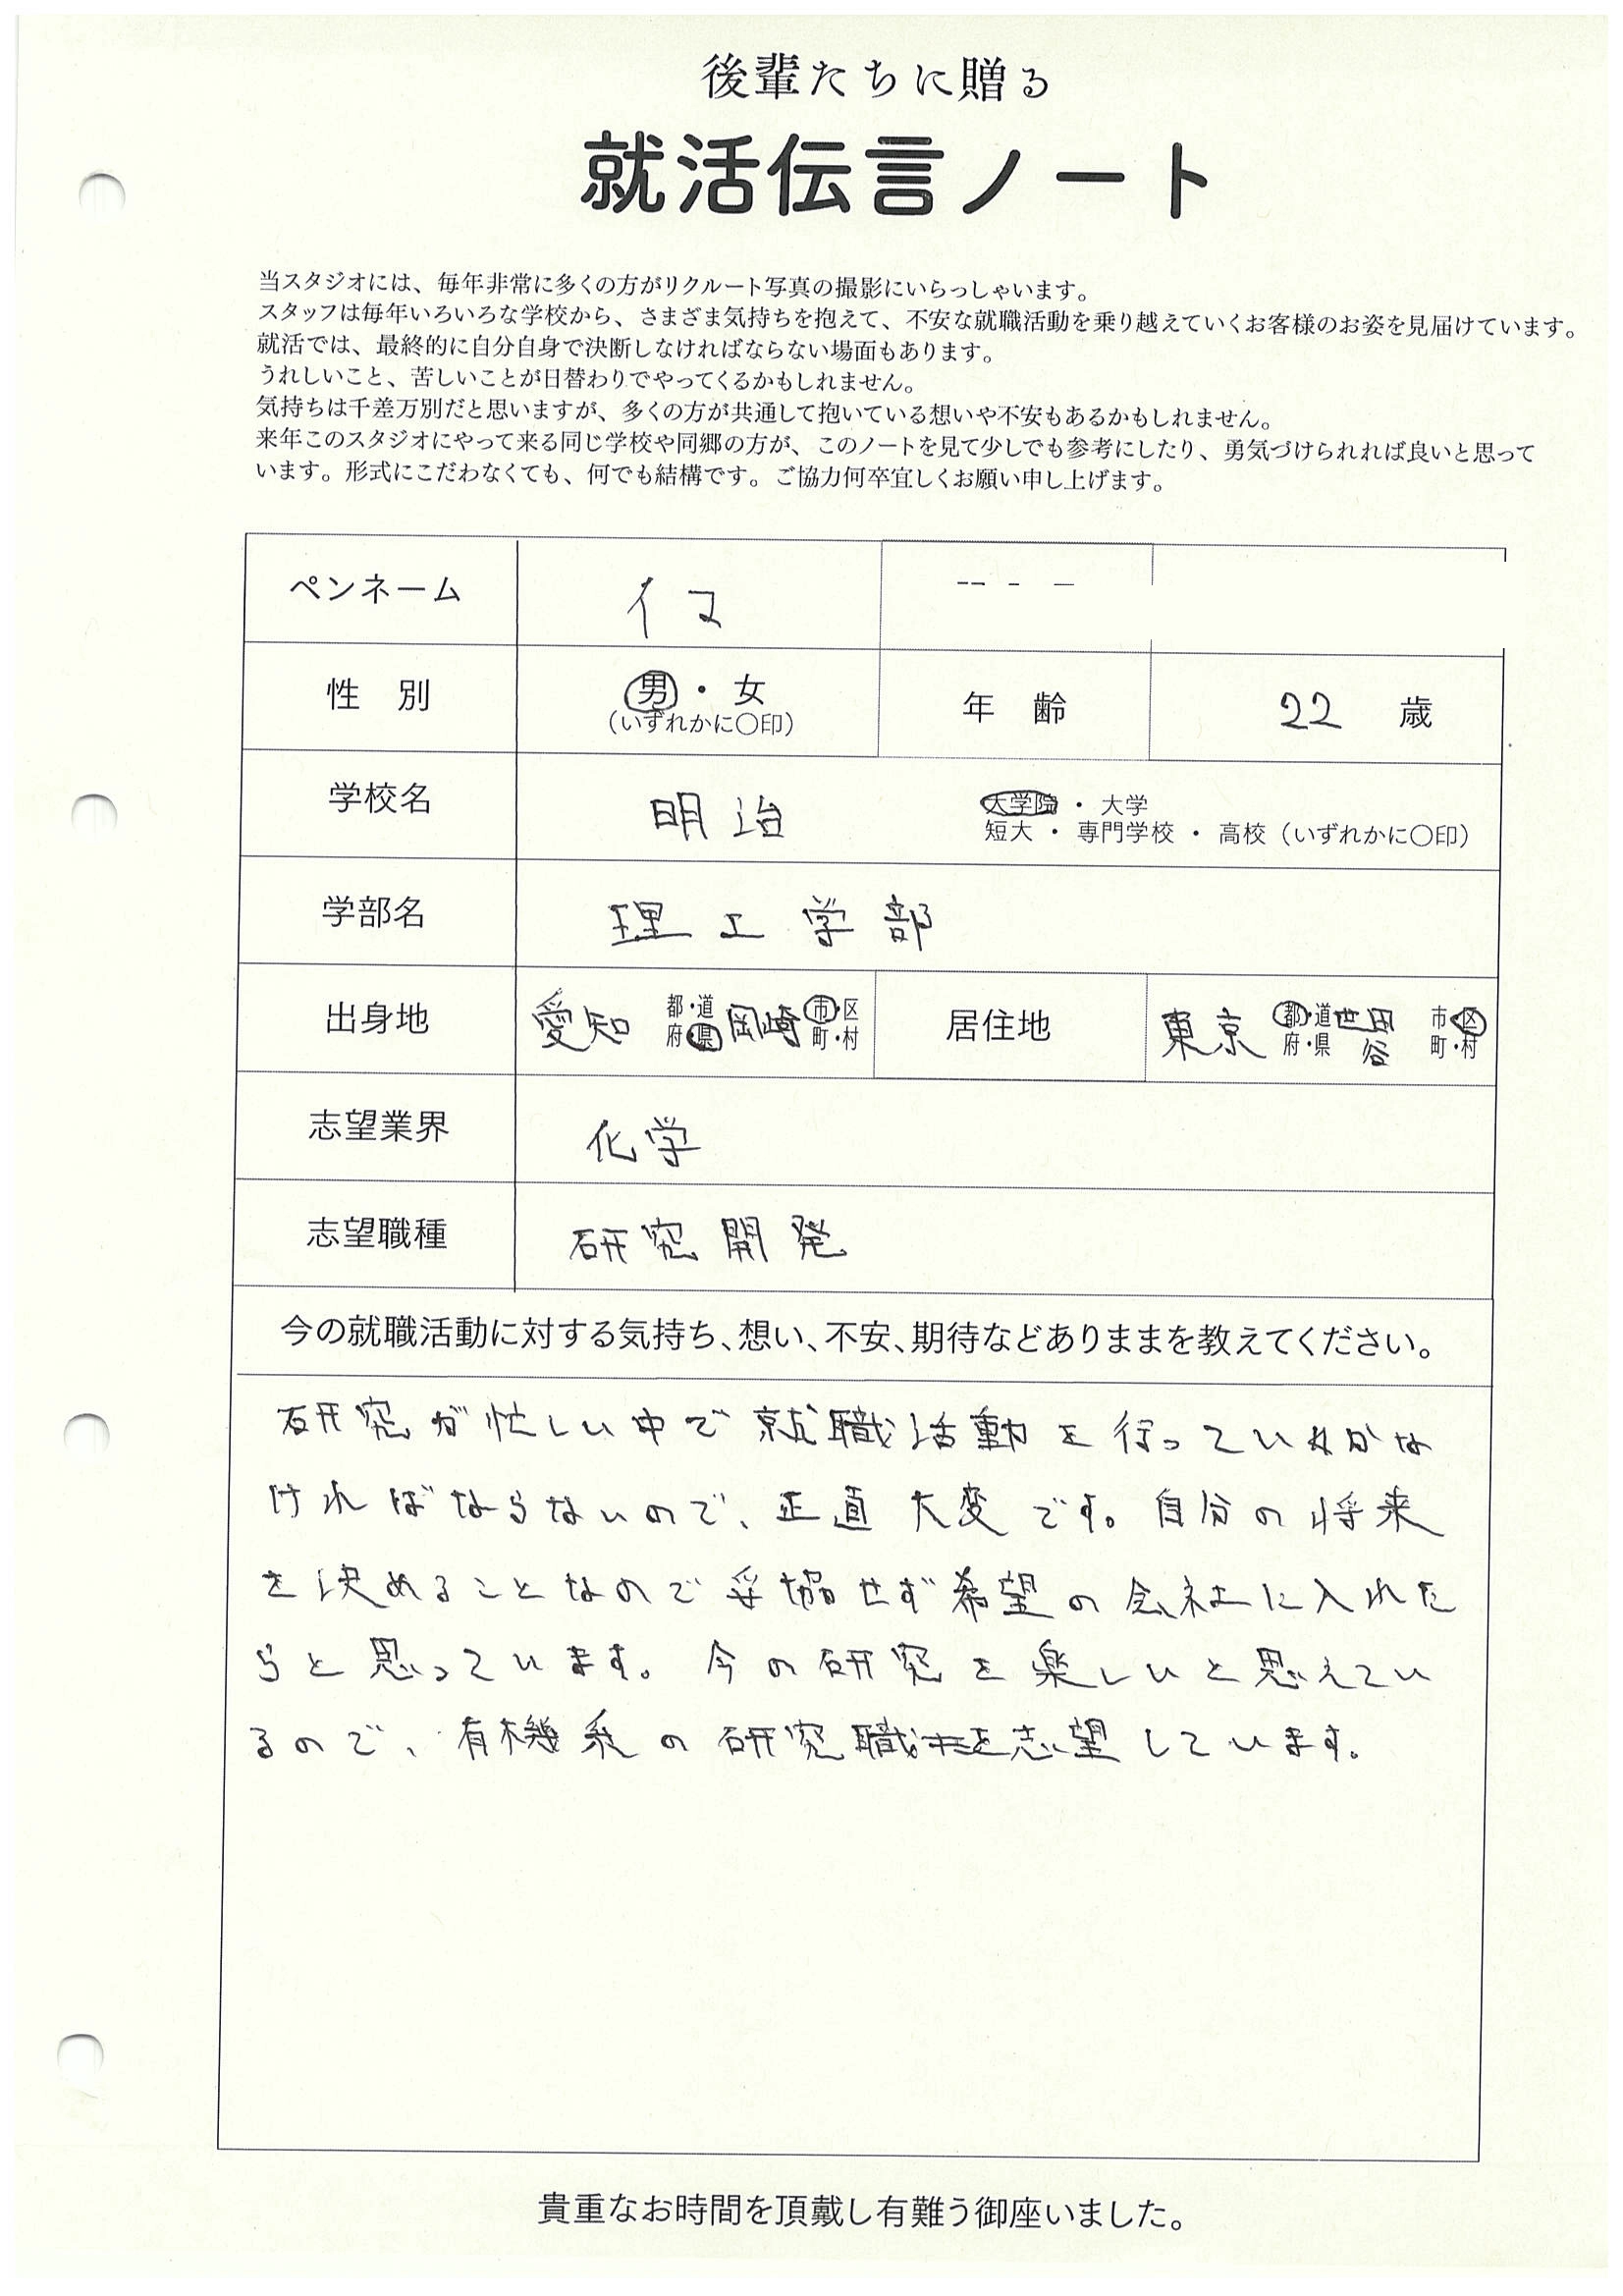 後輩たちに贈る
就活伝言ノート
当スタジオには、毎年非常に多くの方がリクルート写真の撮影にいらっしゃいます。
スタッフは毎年いろいろな学校から、さまざま気持ちを抱えて、不安な就職活動を乗り越えていくお客様のお姿を見届けています。
就活では、最終的に自分自身で決断しなければならない場面もあります。
うれしいこと、苦しいことが日替わりでやってくるかもしれません。
気持ちは千差万別だと思いますが、多くの方が共通して抱いている想いや不安もあるかもしれません。
来年このスタジオにやって来る同じ学校や同郷の方が、このノートを見て少しでも参考にしたり、勇気づけられれば良いと思って
います。形式にこだわなくても、何でも結構です。ご協力何卒宜しくお願い申し上げます。
ペンネーム イマ
性 別 男・女 年 齢 22 歳
（いずれかに〇印）
学校名 明治 大学院・大学
短大・専門学校・高校（いずれかに〇印）
学部名 理工学部
出身地 愛知 都・道 府・県 岡崎 市・区 町・村 居住地 東京 都・道 府・県 世田谷 市・区 町・村
志望業界 化学
志望職種 研究開発
今の就職活動に対する気持ち、想い、不安、期待などありままを教えてください。
研究が忙しい中で就職活動を行っていかな
ければならないので、正直大変です。自分の将来
を決めることなので妥協せず希望の会社に入れた
らと思っています。今の研究を楽しいと思えてい
るので、有機系の研究職を志望しています。
貴重なお時間を頂戴し有難う御座いました。